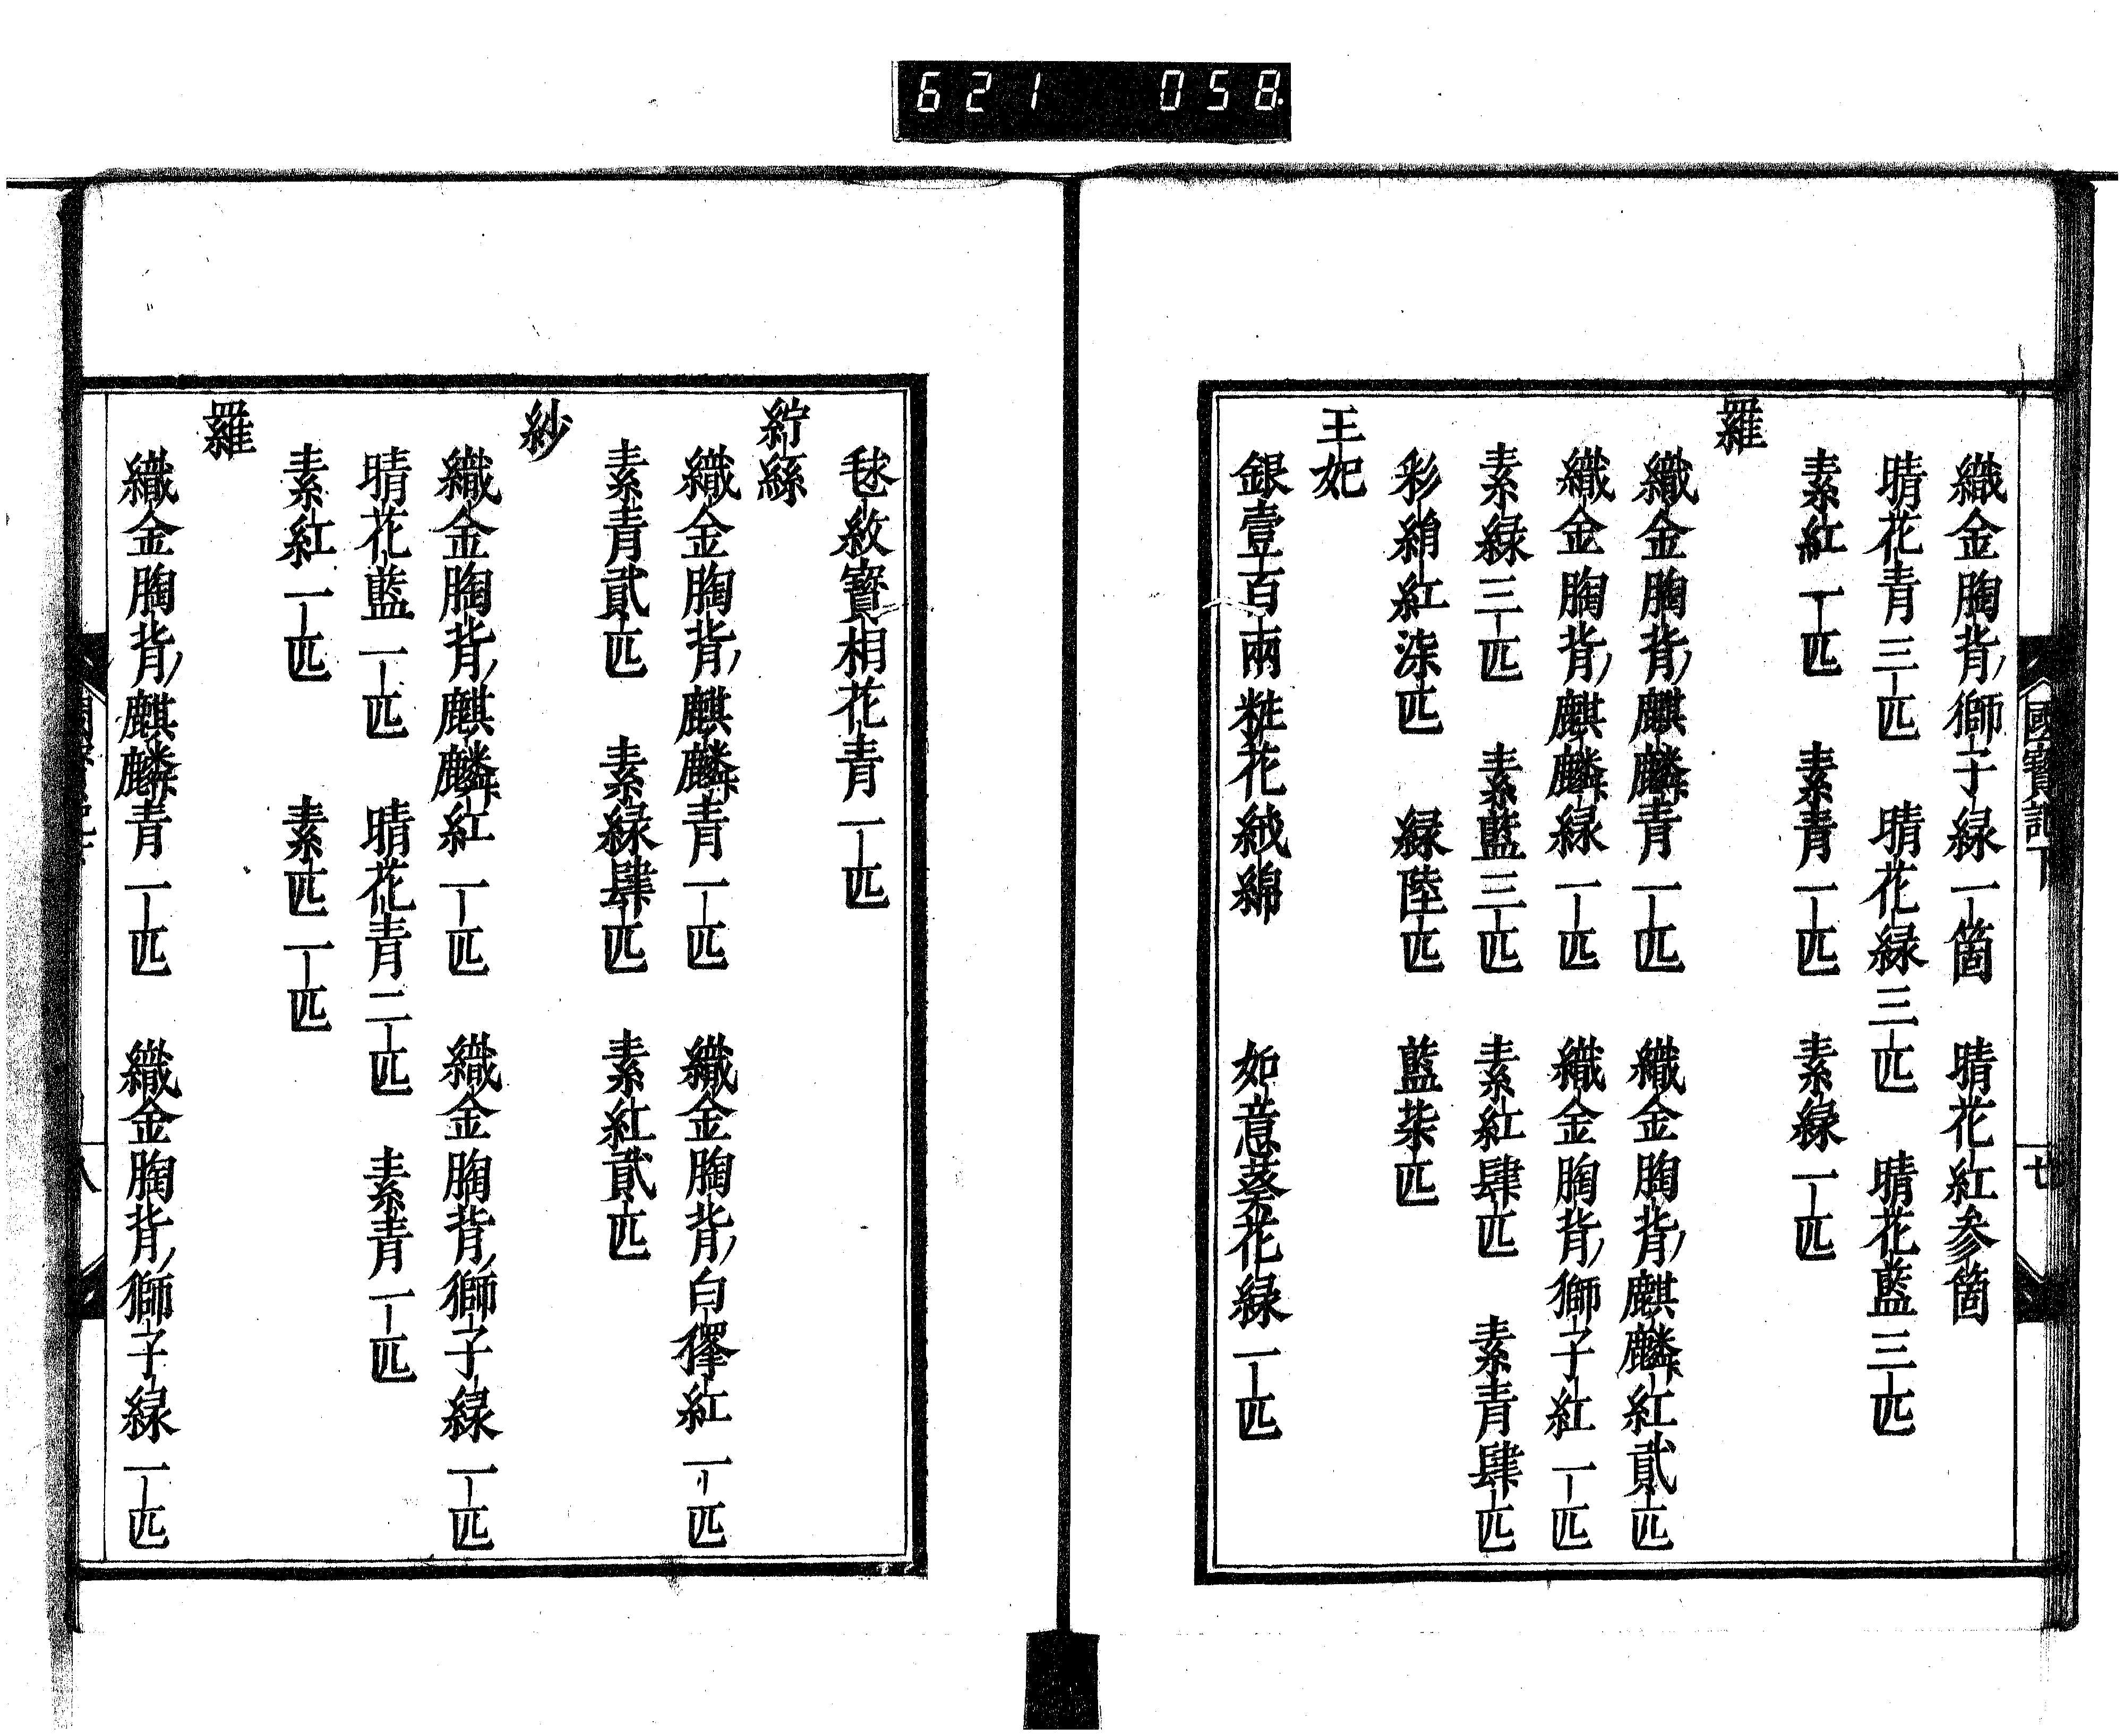 621 058.
國寶記下
廿
織金胸背獅子綠一箇 晴花紅参箇
晴花青三匹 晴花綠三匹 晴花藍三匹
素紅一匹 素青一匹 素綠一匹
羅
織金胸背麒麟青一匹 織金胸背麒麟紅貳匹
織金胸背麒麟綠一匹 織金胸背獅子紅一匹
素綠三匹 素藍三匹 素紅肆匹 素青肆匹
彩絹紅柒匹 綠陸匹 藍柒匹
王妃
銀壹百兩粧花絨綿 如意葵花綠一匹
毬紋寶相花青一匹
紵絲
織金胸背麒麟青一匹 織金胸背白㺔紅一匹
素青貳匹 素綠肆匹 素紅貳匹
紗
織金胸背麒麟紅一匹 織金胸背獅子綠一匹
晴花藍一匹 晴花青二匹 素青一匹
素紅一匹 素匹一匹
羅
織金胸背麒麟青一匹 織金胸背獅子綠一匹